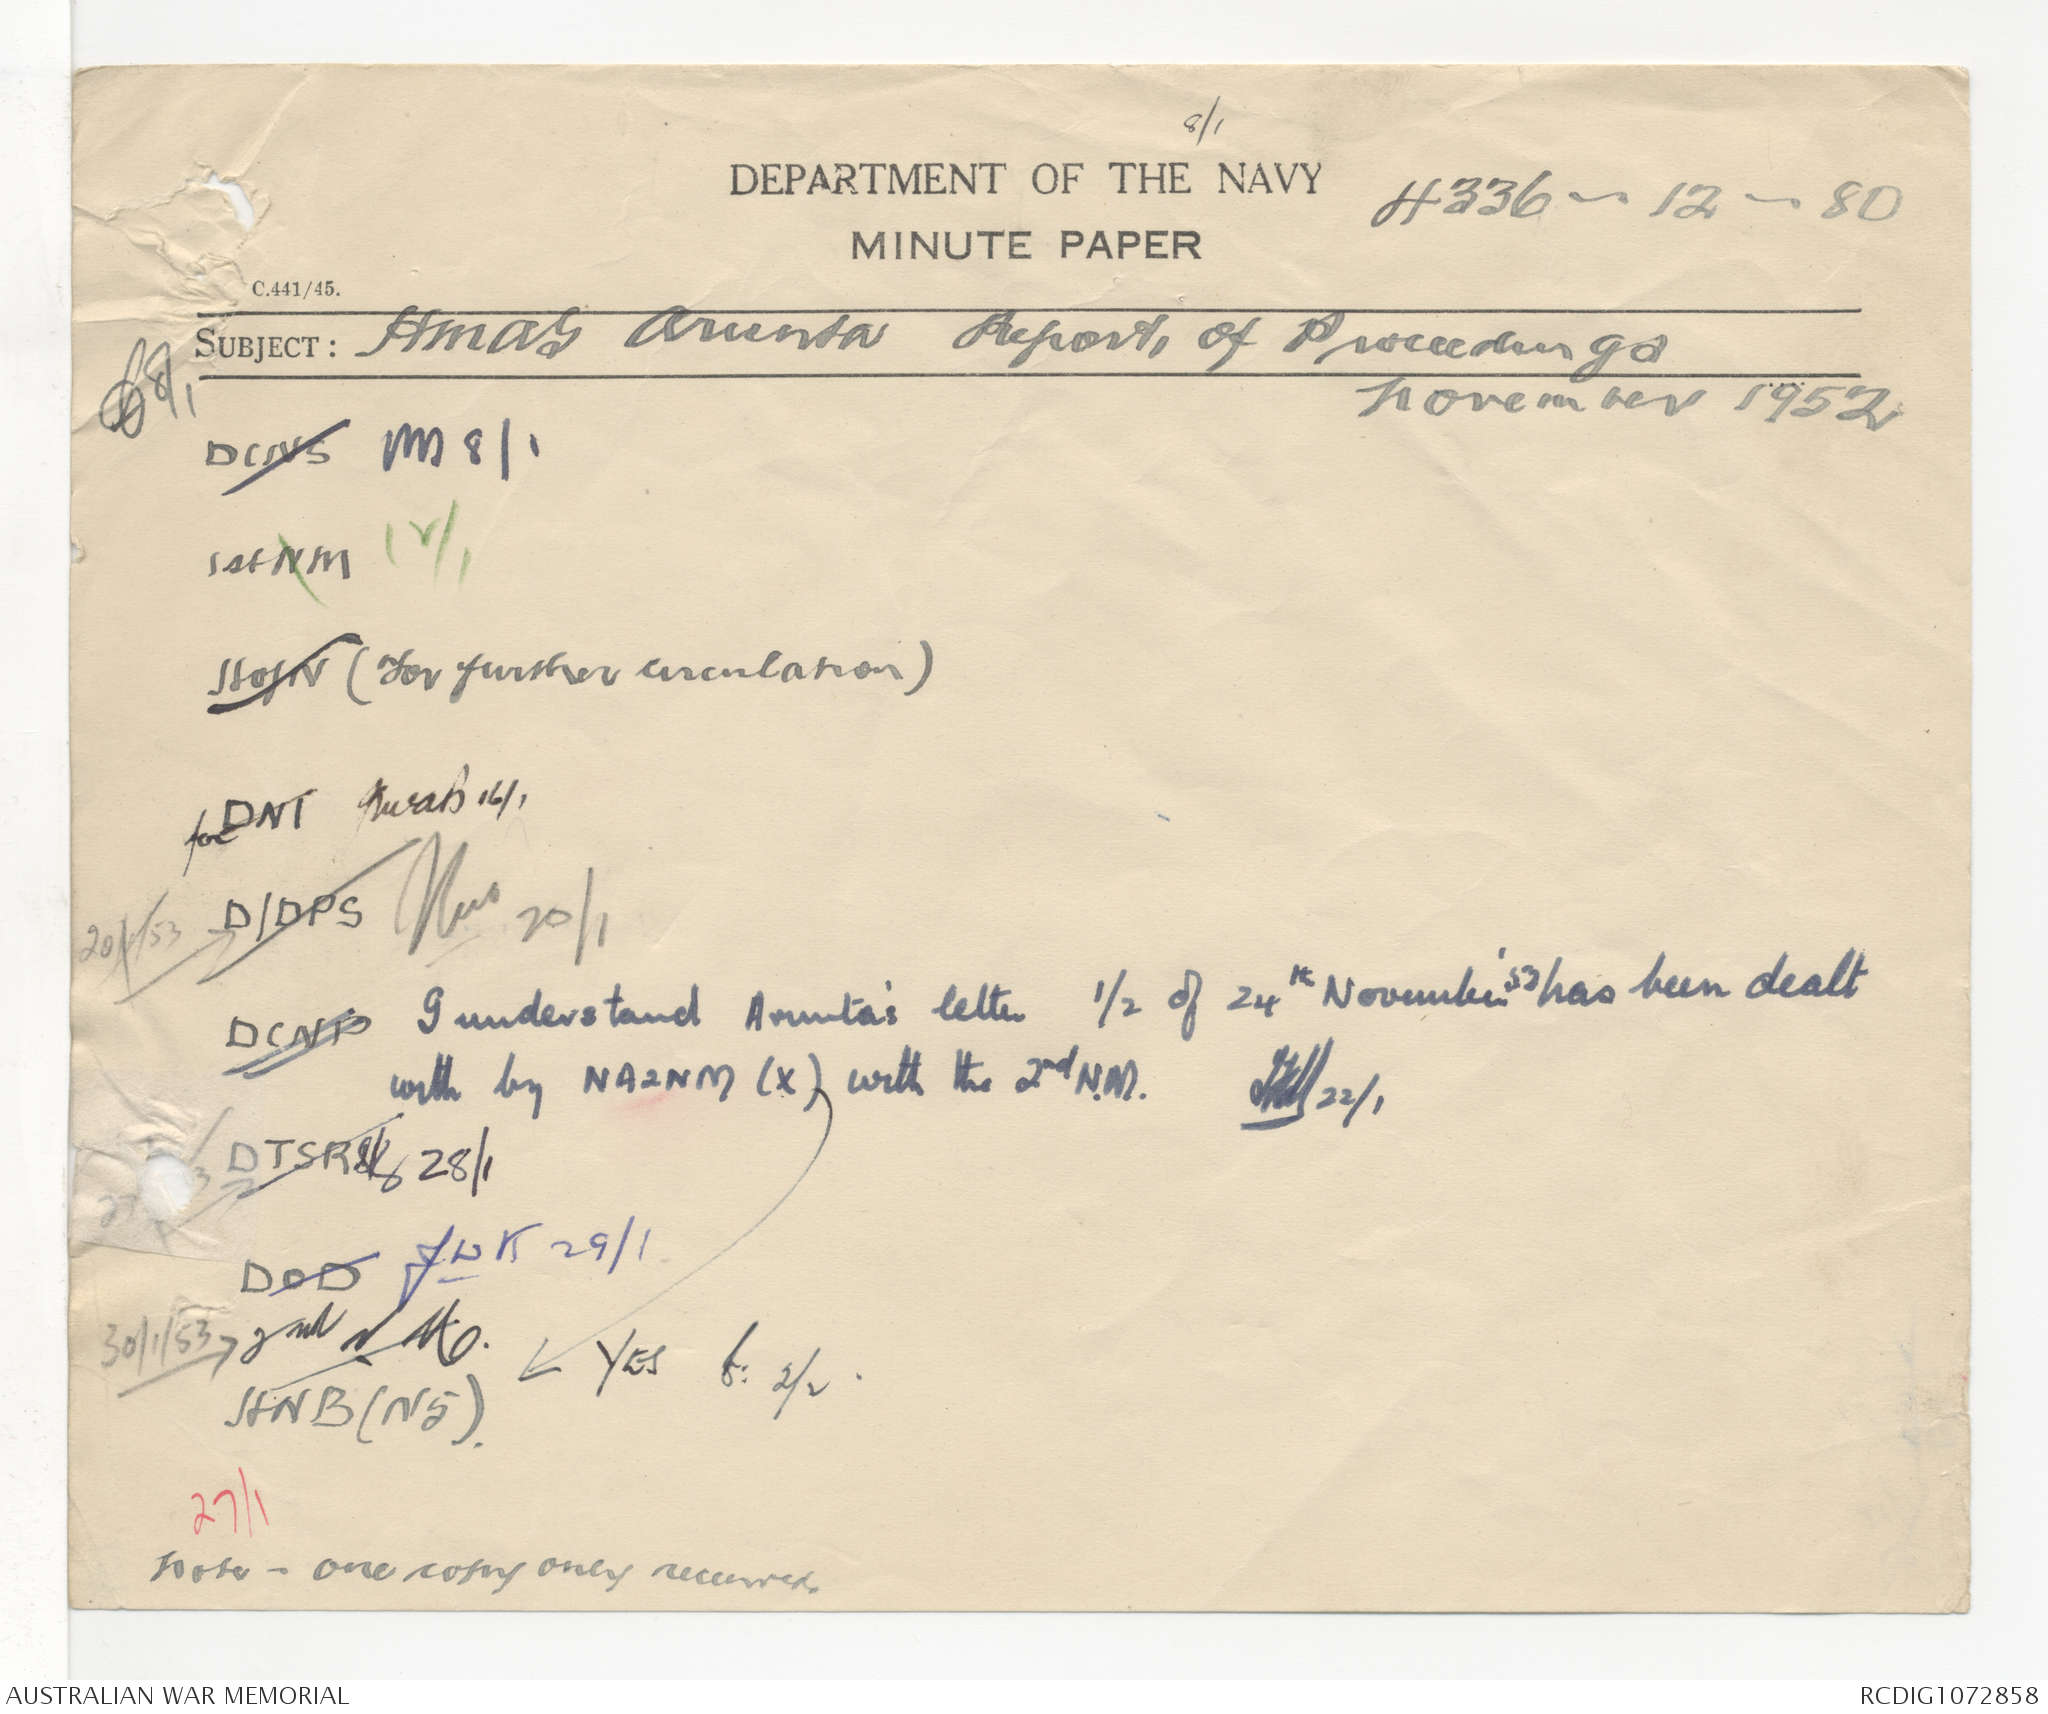 8/1
DEPARTMENT OF THE NAVY
H336 - 12 - 80
MINUTE PAPER
C.441/45.
SUBJECT: HMAS Arunta Report, of Proceedings
November 1952
8/1
DCNS 8/1
1stNM 12/1
HofN (For further circulation)
for DNT 16/1
20/1/53 D/DPS 20/1
DCNP I understand Arunta's letter 1/2 of 24th November '53 has been dealt
with by NA2NM (X) with the 2nd N.M. 22/1
DTSR 28/1
DOD 29/1
30/1/53 2nd NM.
YES 2/2.
HNB (N5).
27/1
Note - one copy only received.
AUSTRALIAN WAR MEMORIAL
RCDIG1072858